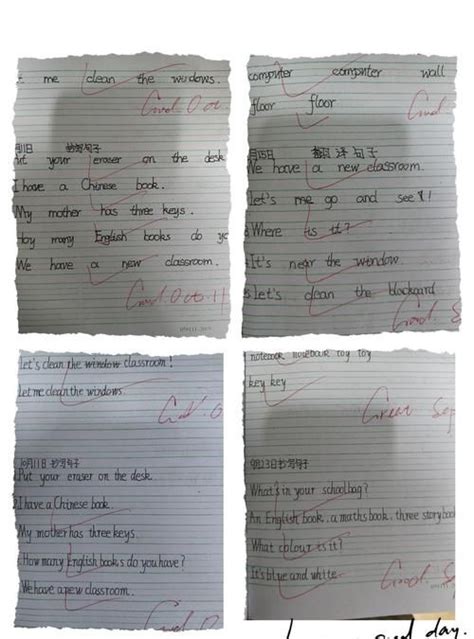 me clean the windows.
Good. Oct
月11日 抄写句子
Put your eraser on the desk
I have a Chinese book.
My mother has three keys.
How many English books do yo
We have a new classroom.
Good. Oct. 11
computer computer wall
floor floor
Good
月15日 翻译句子
We have a new classroom.
Let's me go and see!
Where is it?
It's near the window.
Let's clean the blackboard
Good. S
Let's clean the window classroom!
Let me clean the windows.
Good. O
10月11日抄写句子
Put your eraser on the desk.
I have a Chinese book.
My mother has three keys.
How many English books do you have?
We have a new classroom.
Good.
notebook notebook toy toy
key key
Great Sep
9月23日抄写句子
What's in your schoolbag?
An English book. a maths book. three storybook
What colour is it?
It's blue and white.
Good. S
day.